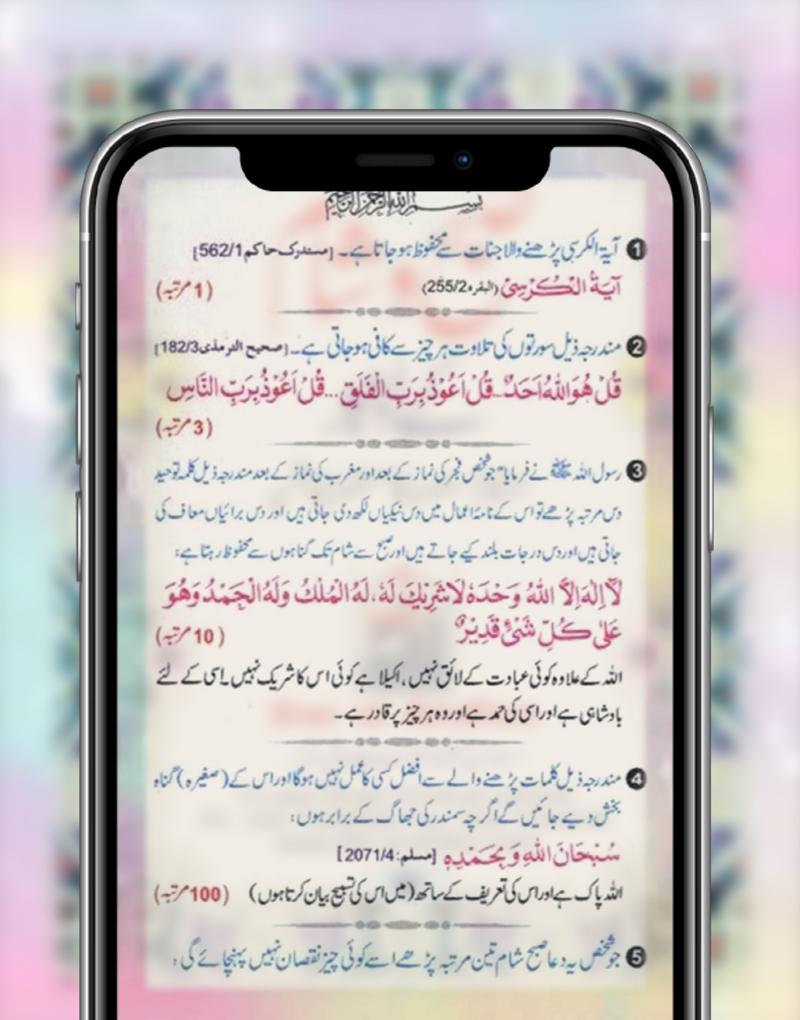 بسم الله الرحمن الرحيم
1 آیۃ الکرسی پڑھنے والا جنات سے محفوظ ہو جاتا ہے۔ [مستدرک حاکم 562/1]
آيَةُ الْكُرْسِيّ (البقرہ 255/2) (1 مرتبہ)
2 مندرجہ ذیل سورتوں کی تلاوت ہر چیز سے کافی ہو جاتی ہے۔ [صحیح الترمذی 182/3]
قُلْ هُوَ اللهُ اَحَدٌ...قُلْ اَعُوْذُ بِرَبِّ الْفَلَقِ...قُلْ اَعُوْذُ بِرَبِّ النَّاسِ
(3 مرتبہ)
3 رسول اللہ ﷺ نے فرمایا "جو شخص فجر کی نماز کے بعد اور مغرب کی نماز کے بعد مندرجہ ذیل کلمہ توحید
دس مرتبہ پڑھے تو اس کے نامۂ اعمال میں دس نیکیاں لکھ دی جاتی ہیں اور دس برائیاں معاف کی
جاتی ہیں اور دس درجات بلند کیے جاتے ہیں اور صبح سے شام تک گناہوں سے محفوظ رہتا ہے:
لَآ اِلٰهَ اِلَّا اللهُ وَحْدَهٗ لَا شَرِيْكَ لَهٗ، لَهُ الْمُلْكُ وَلَهُ الْحَمْدُ وَهُوَ
عَلٰى كُلِّ شَىْءٍ قَدِيْرٌ (10 مرتبہ)
اللہ کے علاوہ کوئی عبادت کے لائق نہیں، اکیلا ہے کوئی اس کا شریک نہیں۔ اسی کے لئے
بادشاہی ہے اور اسی کی حمد ہے اور وہ ہر چیز پر قادر ہے۔
4 مندرجہ ذیل کلمات پڑھنے والے سے افضل کسی کا عمل نہیں ہو گا اور اس کے (صغیرہ) گناہ
بخش دیے جائیں گے اگرچہ سمندر کی جھاگ کے برابر ہوں:
سُبْحَانَ اللهِ وَبِحَمْدِهٖ [مسلم: 2071/4]
اللہ پاک ہے اور اس کی تعریف کے ساتھ (میں اس کی تسبیح بیان کرتا ہوں) (100 مرتبہ)
5 جو شخص یہ دعا صبح شام تین مرتبہ پڑھے اسے کوئی چیز نقصان نہیں پہنچائے گی: